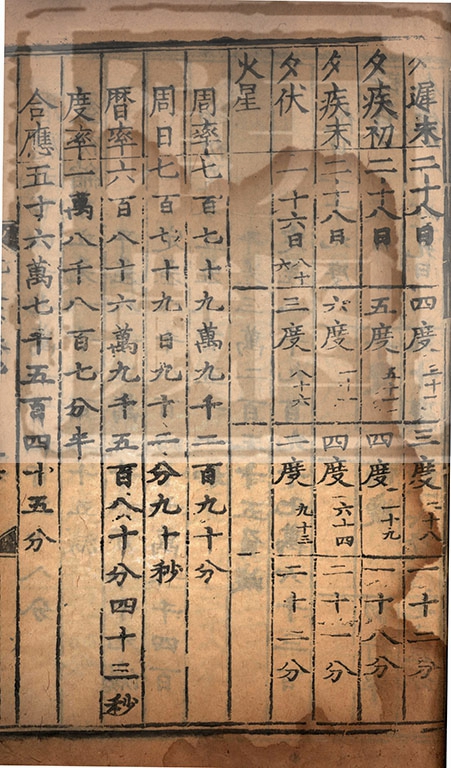 夕遲末二十八日四度三十一三度二十八一十二分
夕疾初二十八日五度五十一四度一十九一十八分
夕疾末二十八日六度一十一四度六十四二十一分
夕伏一十六日八十六三度八十六二度九十三二十二分
火星
周率七百七十九萬九千二百九十分
周日七百七十九日九十二分九十秒
暦率六百八十六萬九千五百八十分四十三秒
度率一萬八千八百七分半
合應五十六萬七千五百四十五分